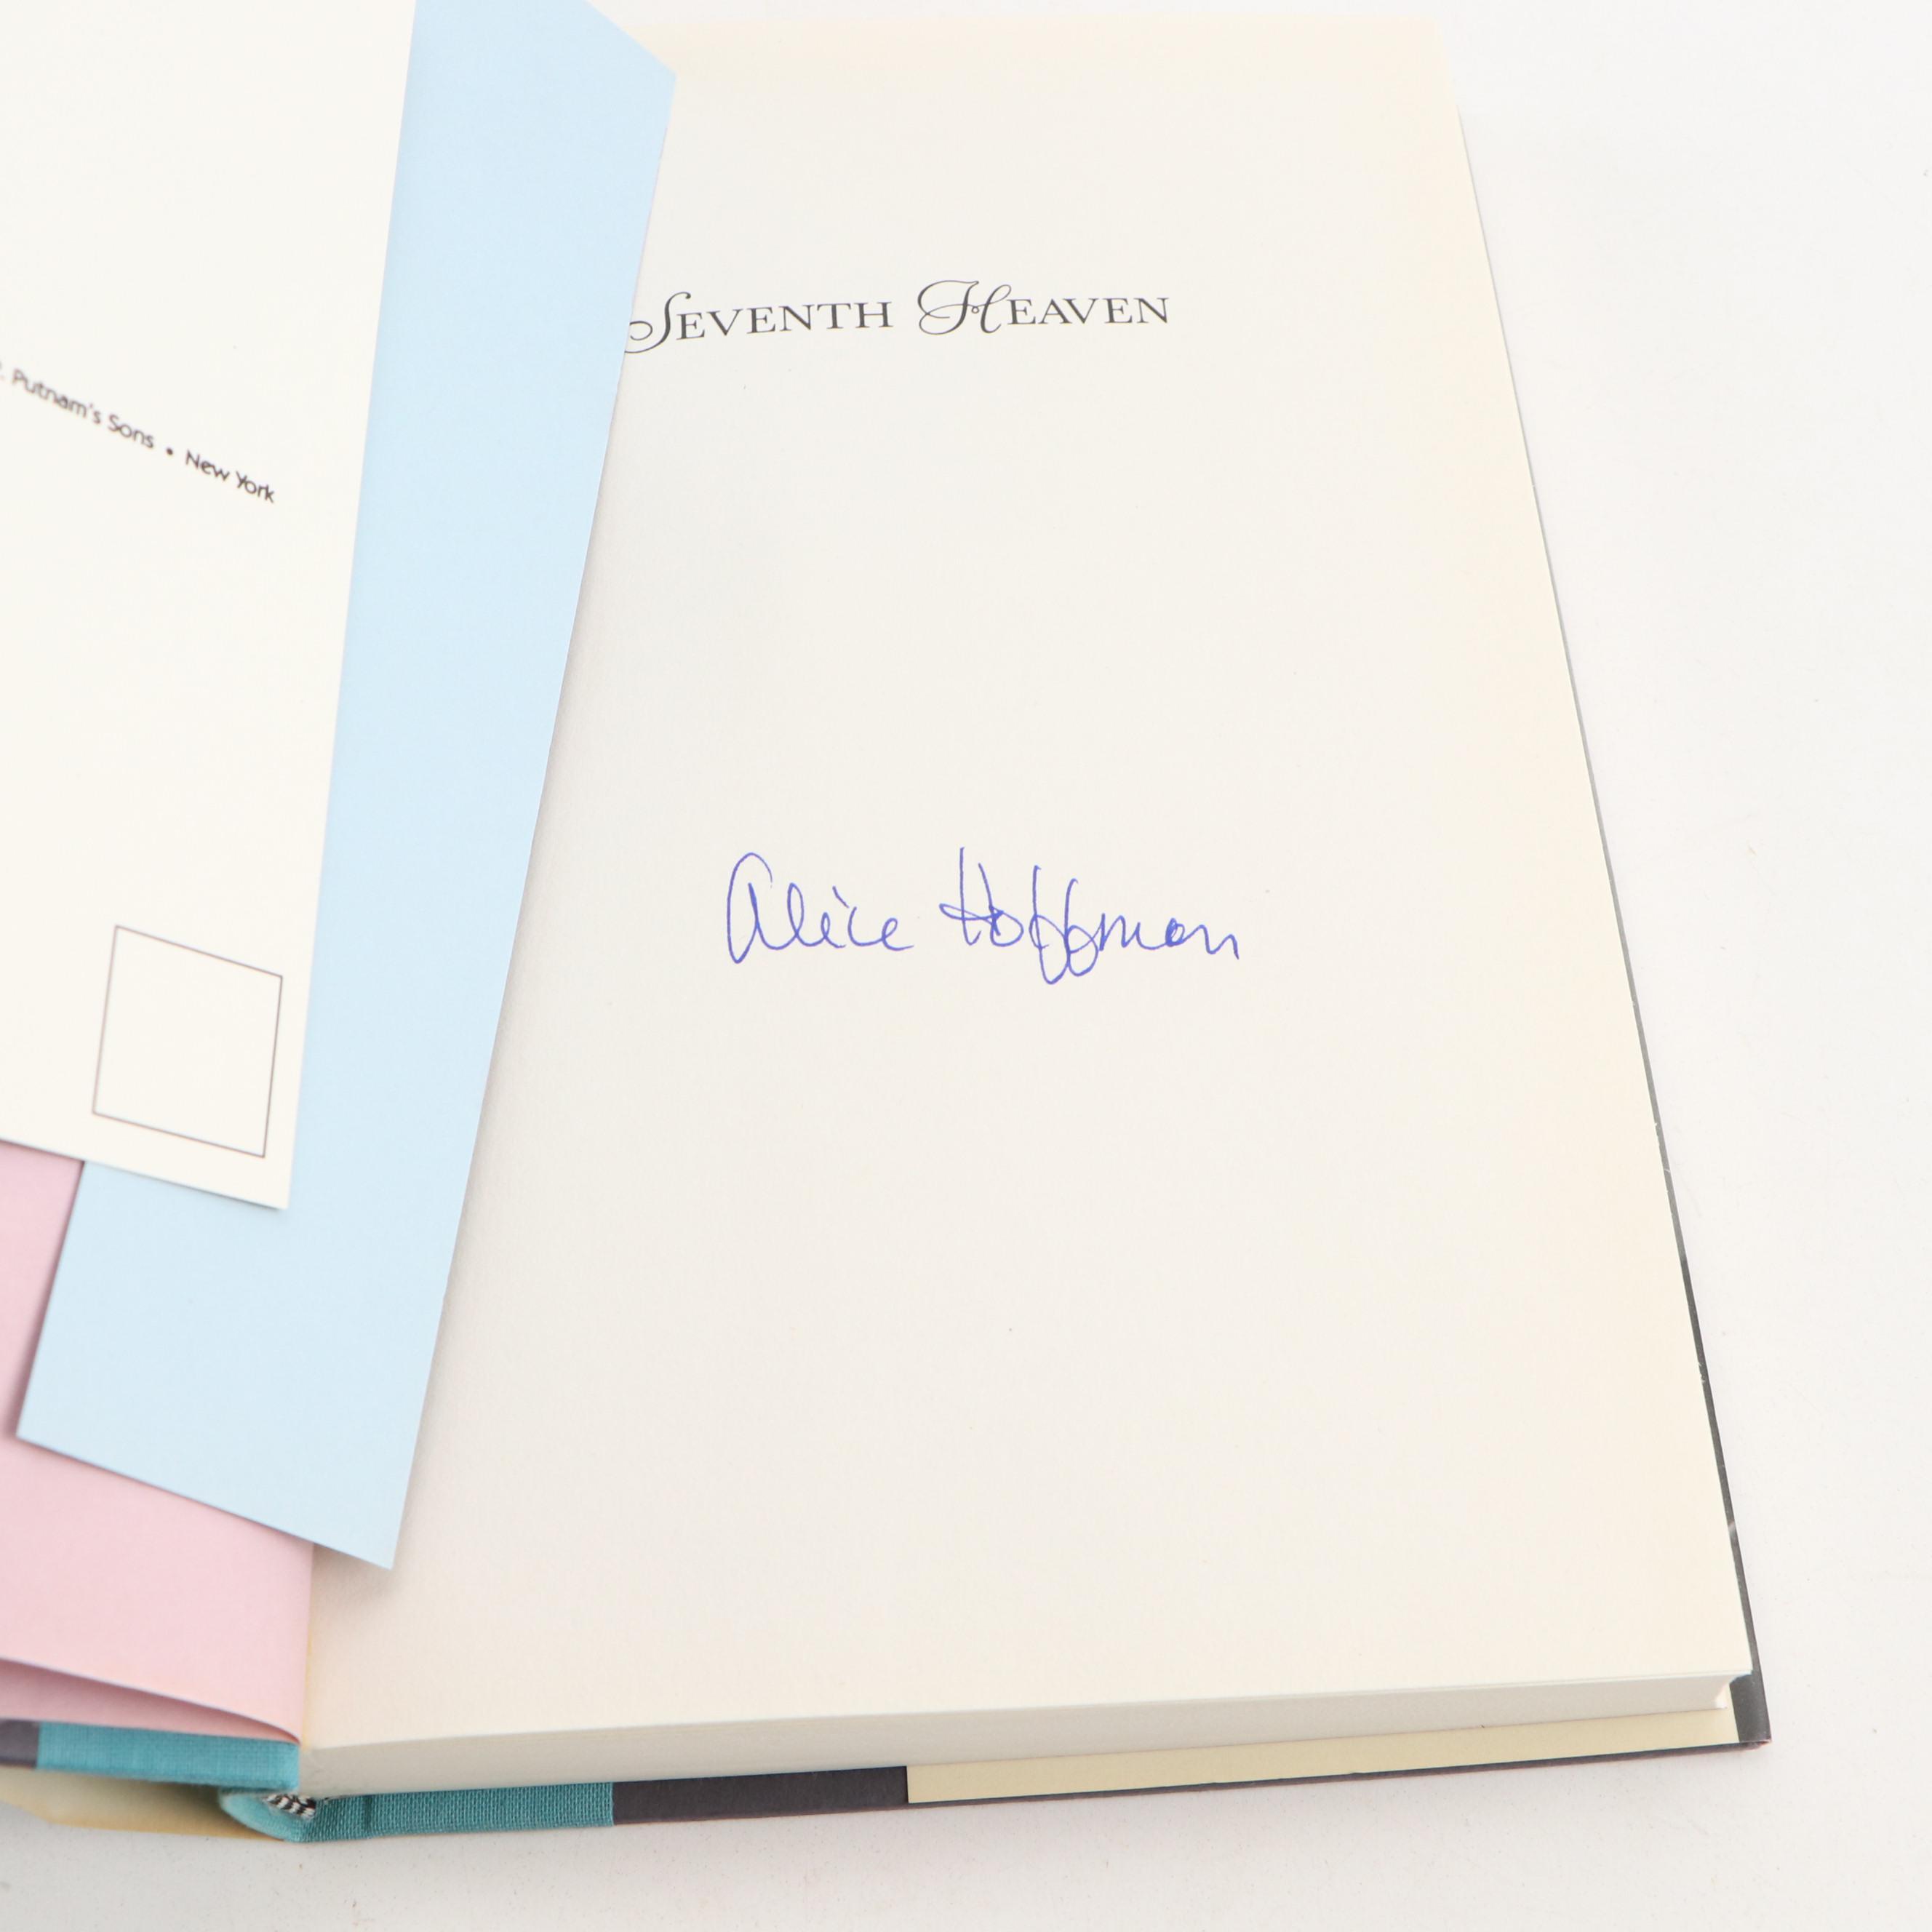 Putnam's Sons • New York
SEVENTH HEAVEN
Alice Hoffman